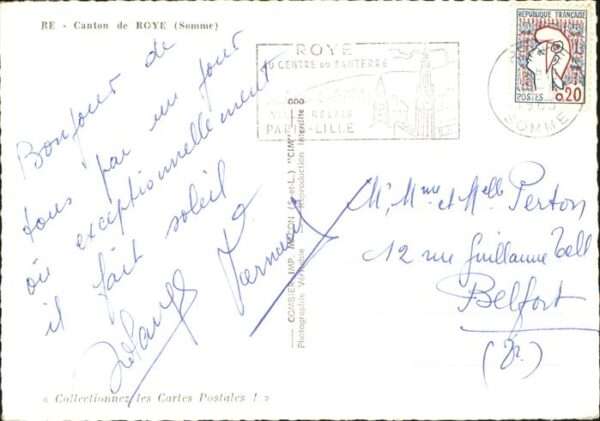 RE - Canton de ROYE (Somme)
Bonjour de
tous par un jour
où exceptionnellement
il fait soleil
« Collectionnez les Cartes Postales ! »
COMBIER IMP. MACON (S.-et-L.) "CIM"
Photographie Véritable Reproduction Interdite
ROYE
AU CENTRE DU SANTERRE
PARIS-LILLE
SOMME
REPUBLIQUE FRANÇAISE
POSTES
0,20
Mr, Mme et Melle Perton
12 rue Guillaume Tell
Belfort